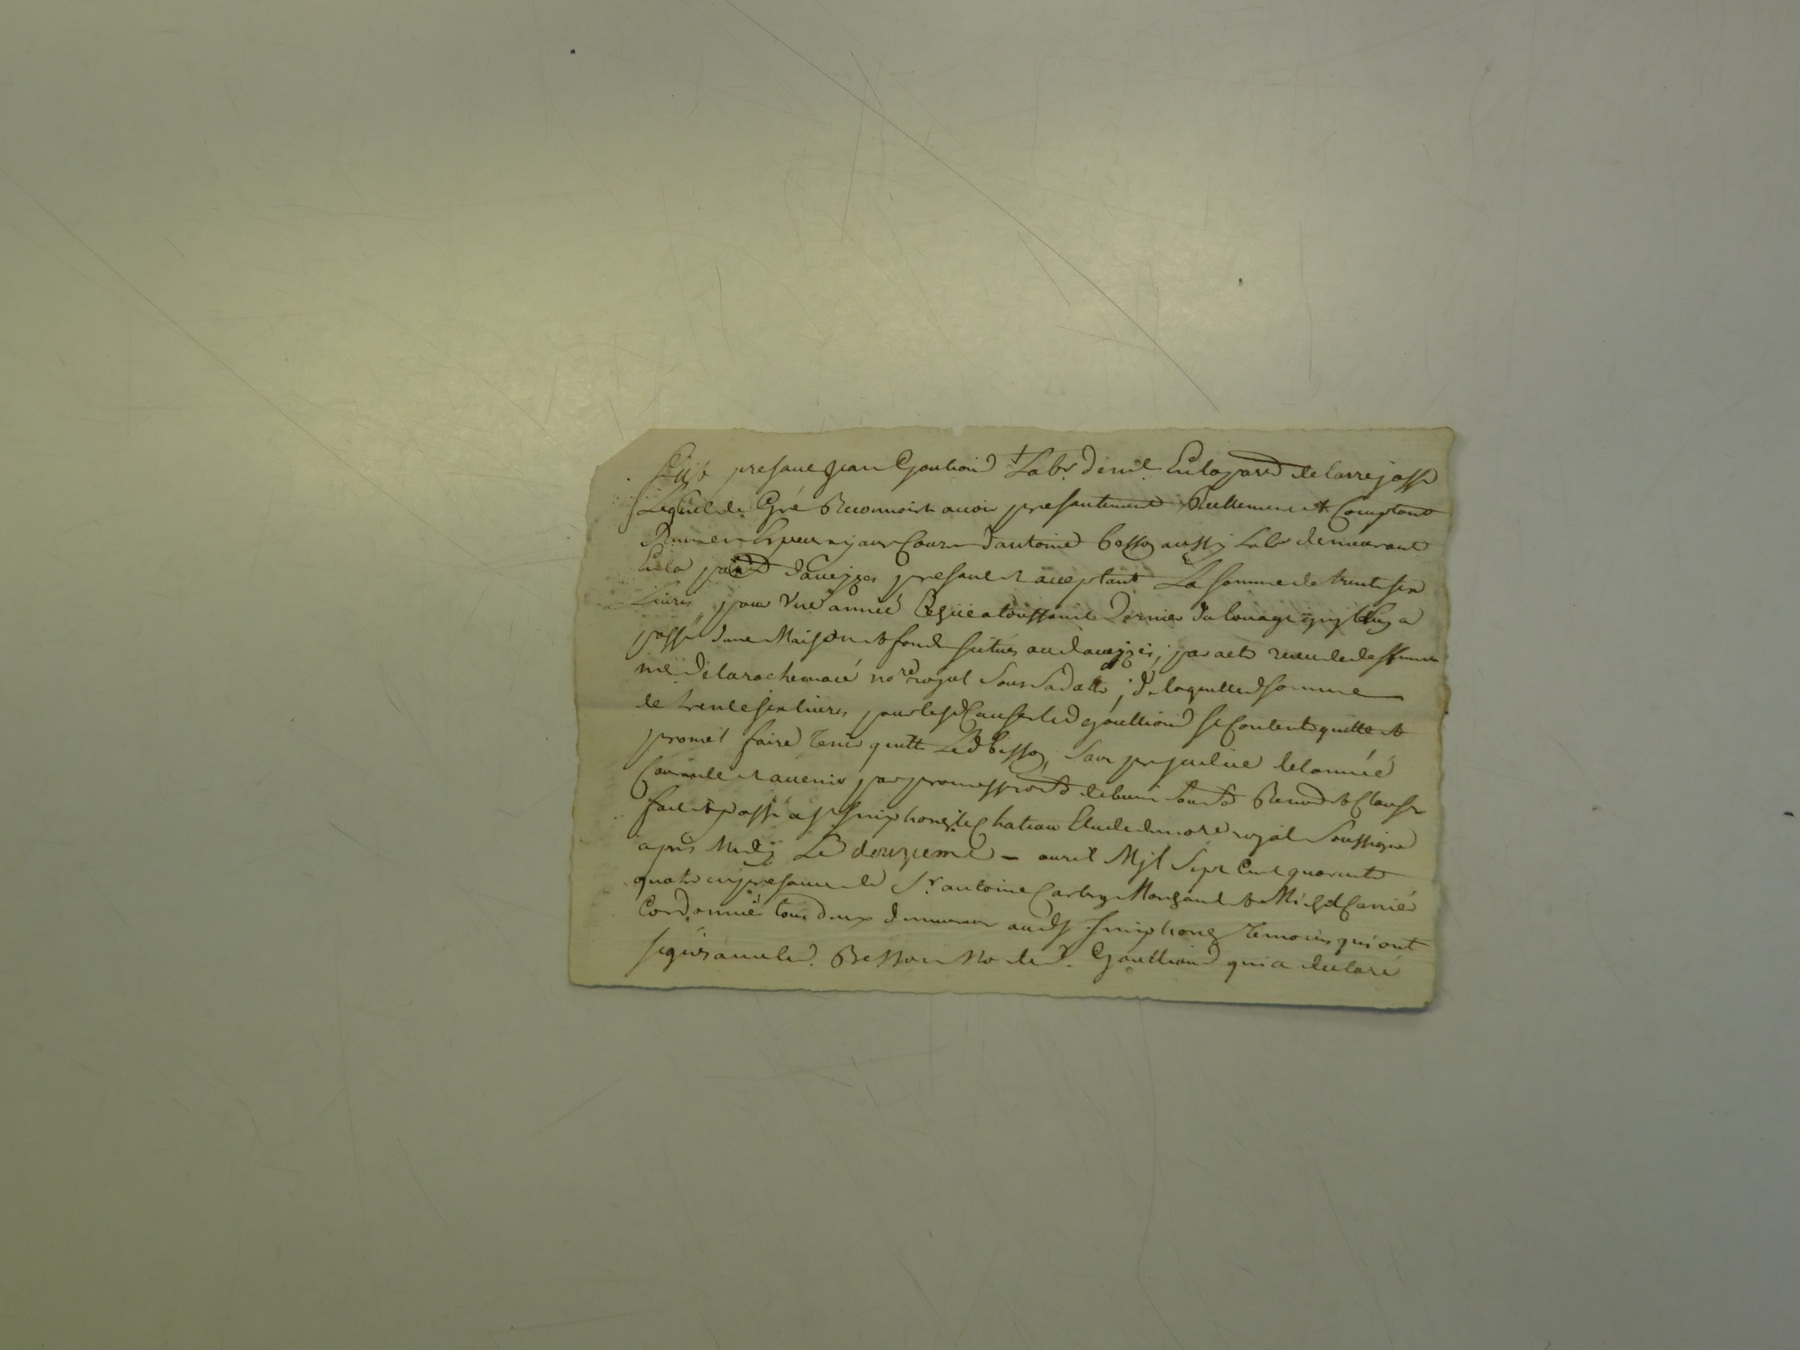 fut presant jean Goutton Labr demt En la parr de larrejasse
Lequel de Gré Reconnoist auoir presantement Reellement et Comptant
en Especes ayant Cours d'antoine besson aussy Labr demeurant
En la parr d'aueizes presant et aceptant La somme de trente six
Liures pour Vne année Echüe a toussaint Dernier du louage quil luy a
passé dune Maison et fond scitués aud aueizes, par acte receu
me delarochemacé nore royal Sous Sa datte, de laquelle somme
de trente six liures pour les Causes led Goutton se Contente quitte et
promet faire tenir quitte Led besson, Sans prejudice de lannée
Courante et auenir par promesse Renond et Clauses
fait et passé a st simphorien le Chateau Etude du nore royal Soussigné
apres Midy Le douzieme auril Mil Sept Cent quarante
quatre en presance de Sr antoine Marchand et Michel
Cordonnier tous deux demeurant aud st simphorien temoins qui ont
signés auec led. Besson Non led. Goutton qui a declaré